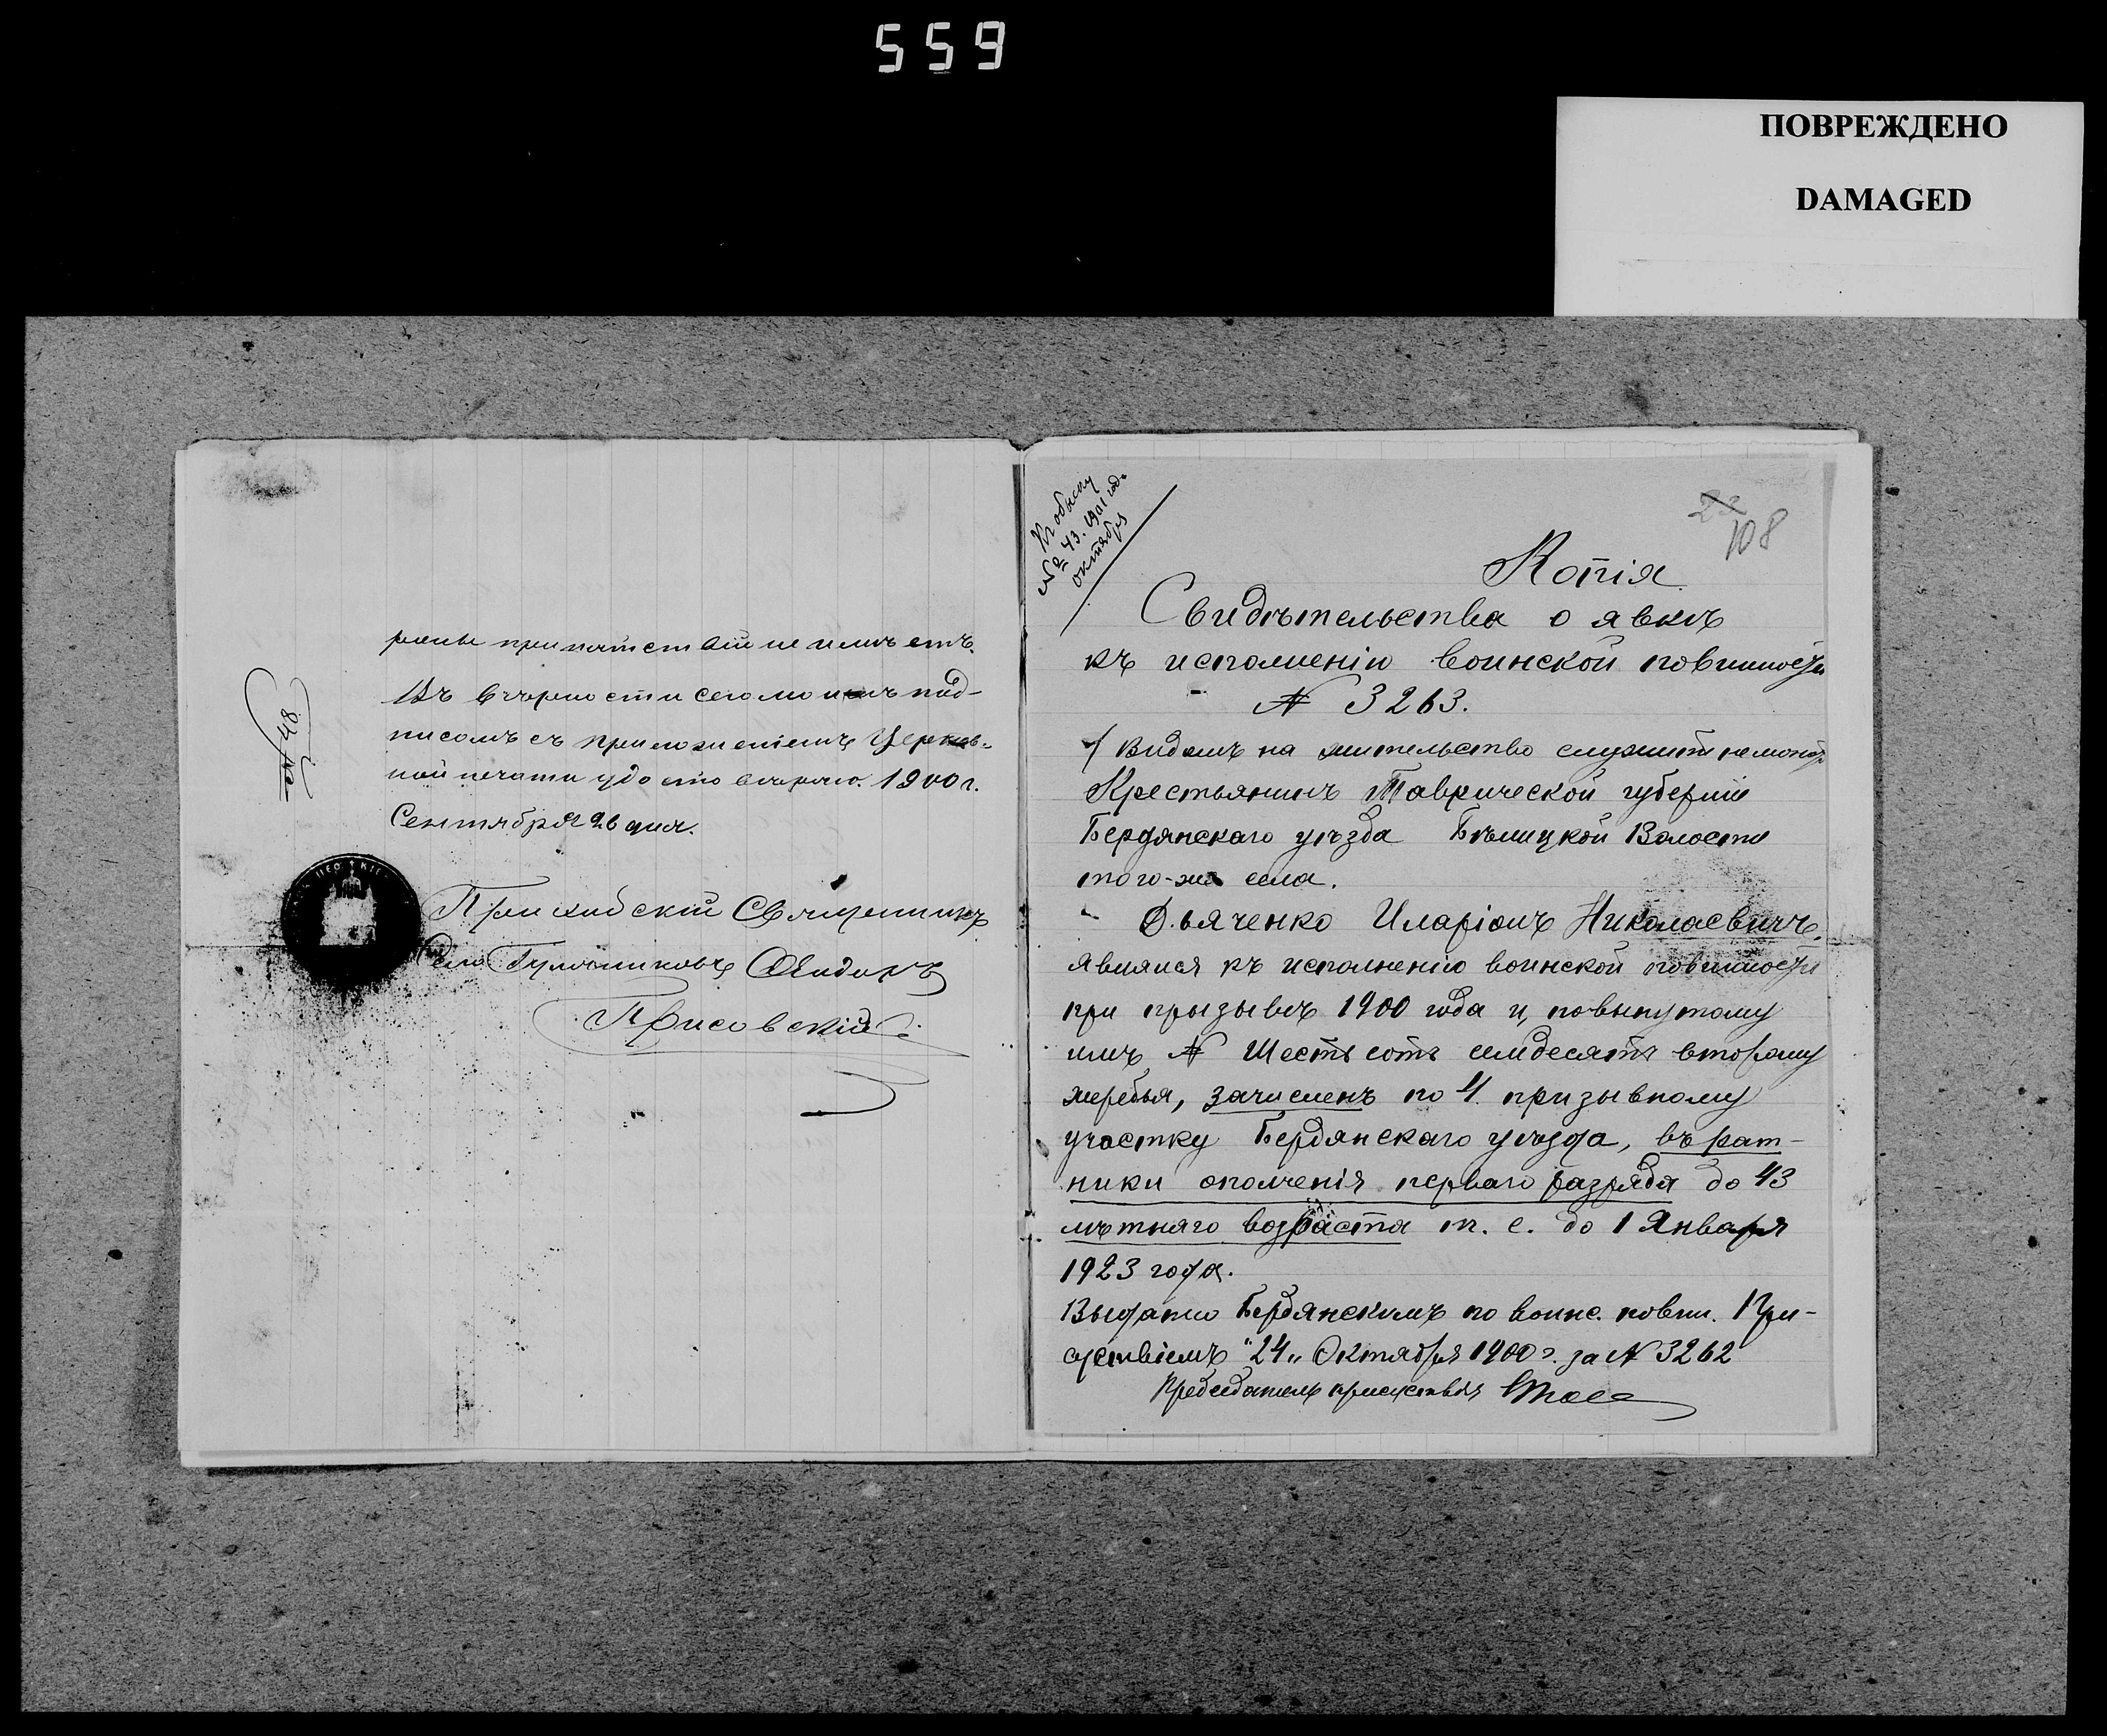 559
ПОВРЕЖДЕНО
DAMAGED
раны препятствій не имѣетъ.
Въ вѣрности сего моимъ под-
писомъ съ приложеніемъ Церков-
ной печати удостовѣряю. 1900 г.
Сентября 26 дня.
№ 48
Приходскій Священникъ
Села
Присовскій
Къ обыску
№ 43. 1901 года
октября
22
108
Копія
Свидѣтельства о явкѣ
къ исполненію воинской повинности
№ 3263.
/ Видомъ на жительство служить не можетъ
Крестьянинъ Таврической губерніи
Бердянскаго уѣзда Бѣлицкой Волости
того-же села.
Дьяченко Иларіонъ Николаевичъ.
явился къ исполненію воинской повинности
при призывѣ 1900 года и, по вынутому
имъ № Шестьсотъ семдесятъ второму
жеребья, зачисленъ по 4 призывному
участку Бердянскаго уѣзда, въ рат-
ники ополченія перваго разряда до 43
лѣтняго возраста т. е. до 1 Января
1923 года.
Выдано Бердянскимъ по воинс. повин. При-
сутствіемъ "24" Октября 1900 г. за № 3262
Предсѣдатель присутствія